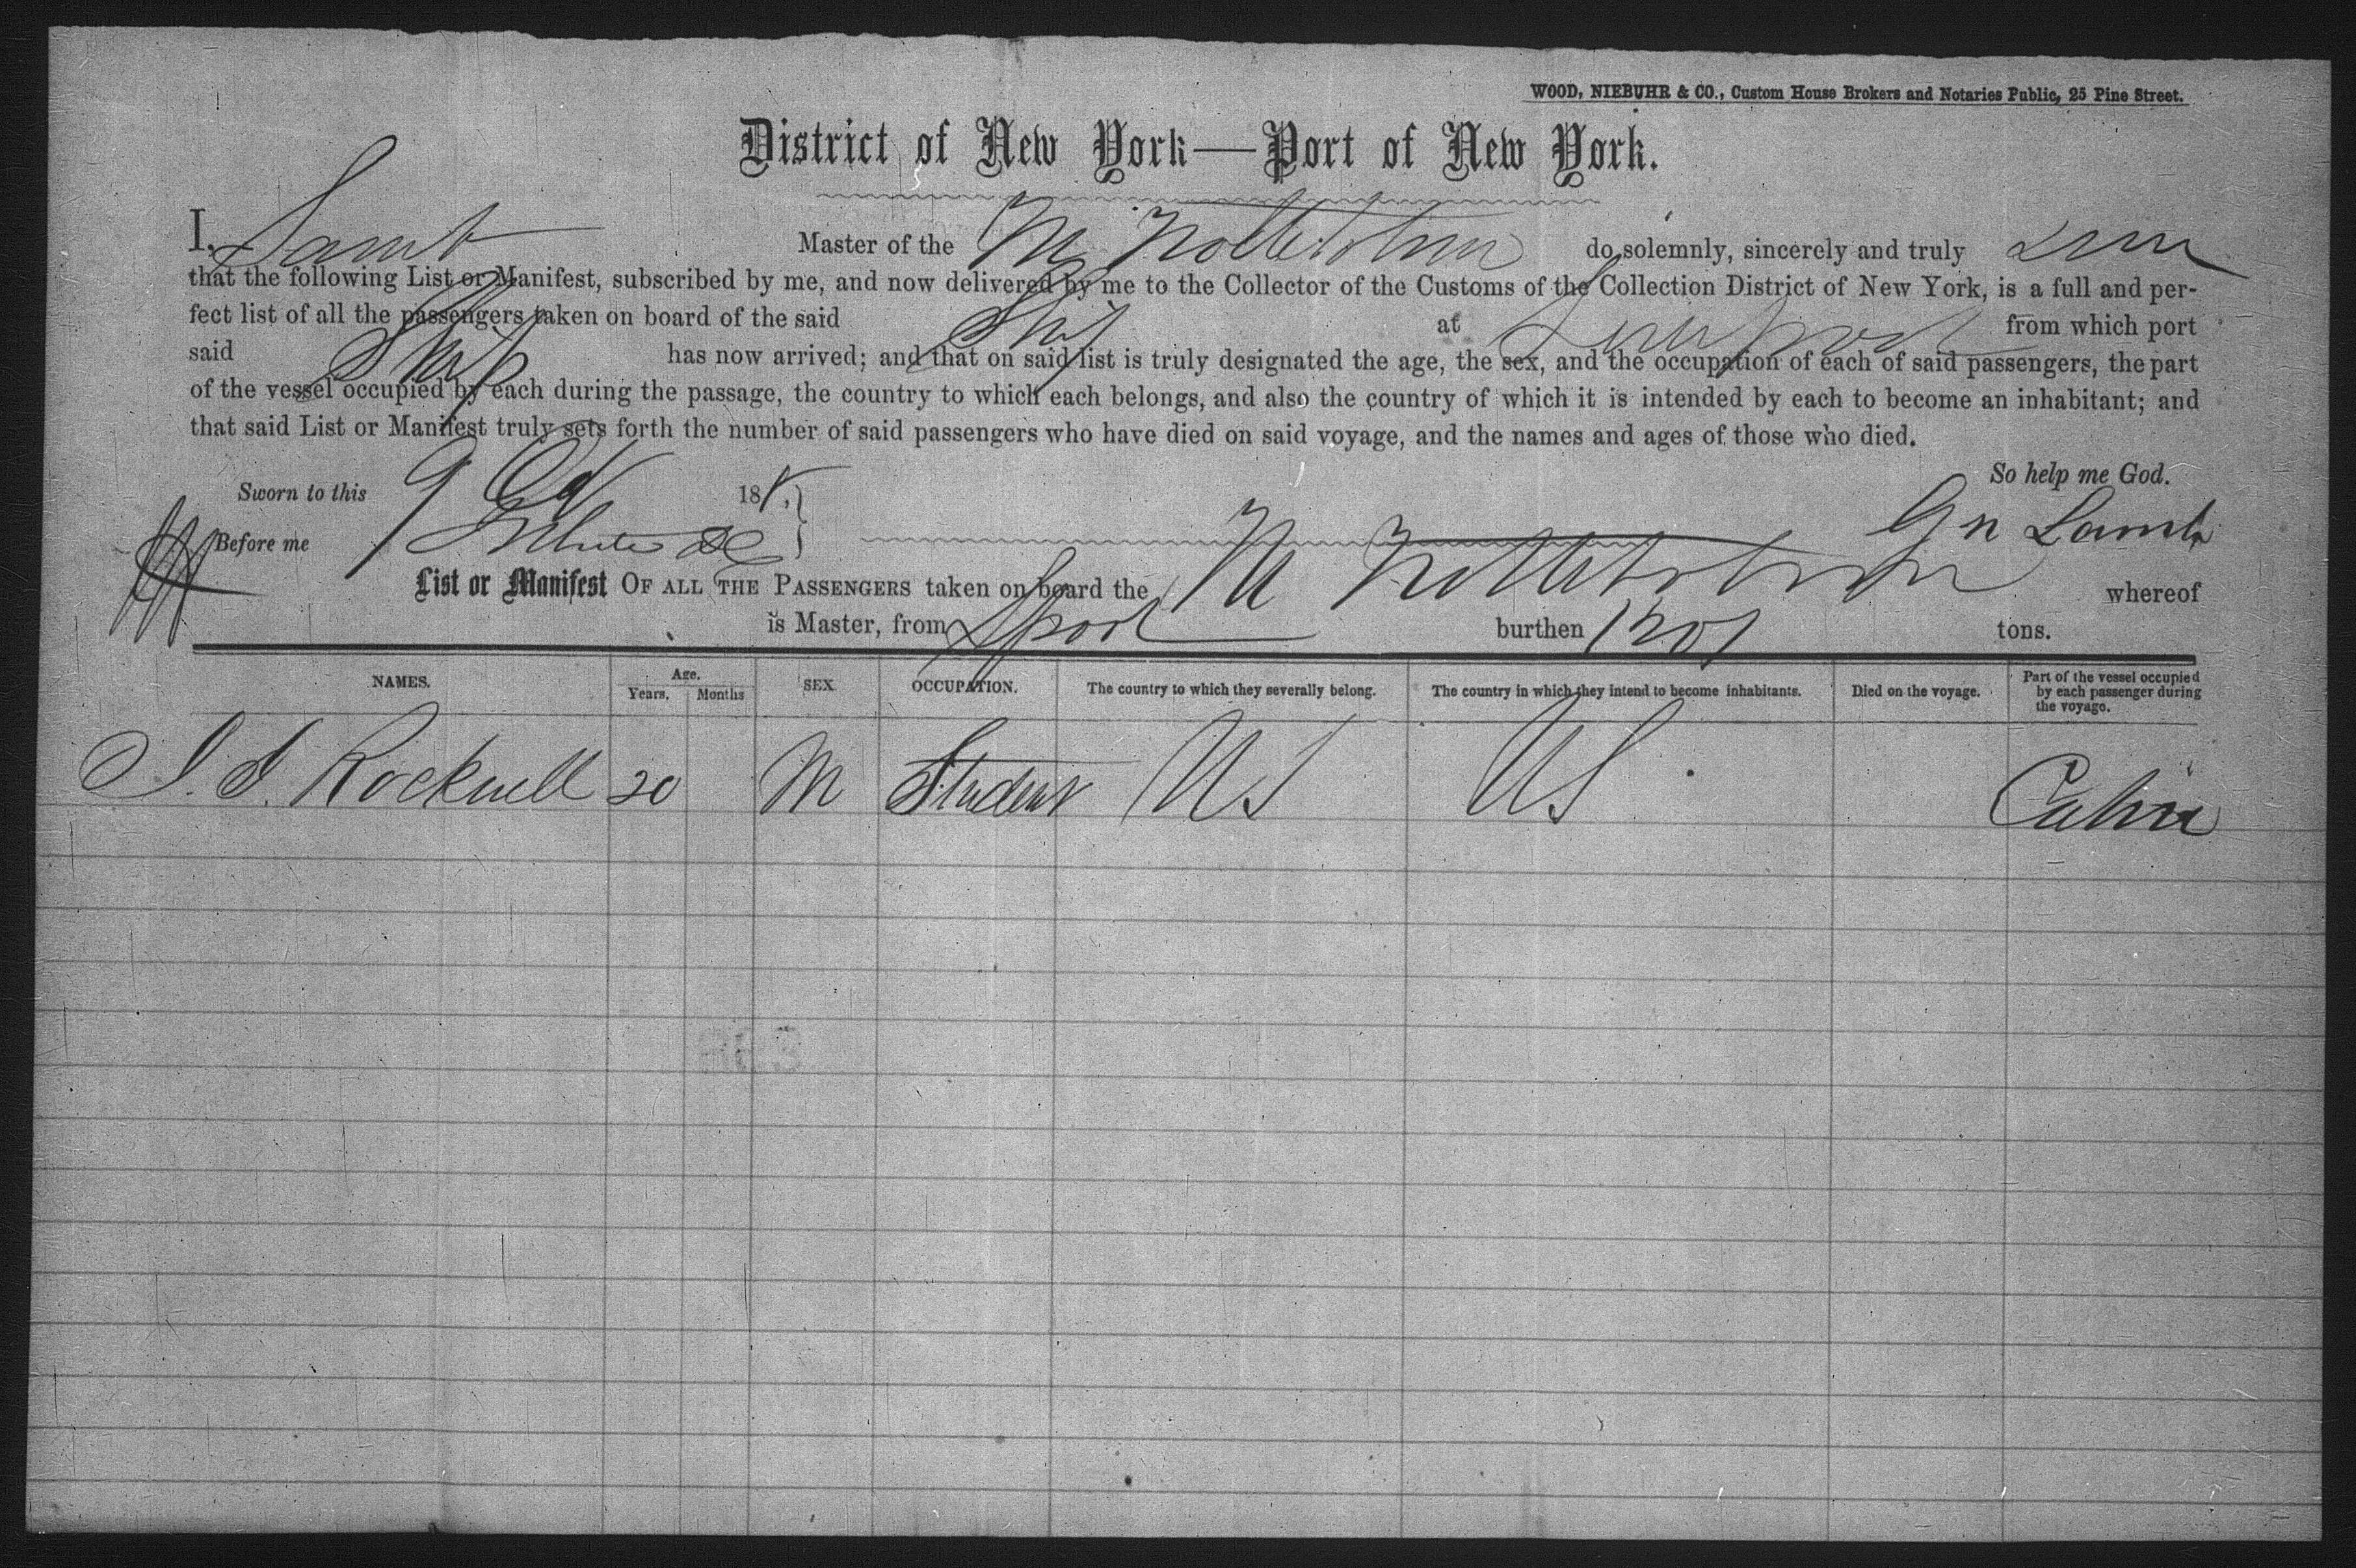 WOOD, NIEBUHR & CO., Custom House Brokers and Notaries Public, 25 Pine Street.
District of New York—Port of New York.
I, Lamb Master of the M Nottebohm do solemnly, sincerely and truly
that the following List or Manifest, subscribed by me, and now delivered by me to the Collector of the Customs of the Collection District of New York, is a full and per-
fect list of all the passengers taken on board of the said Ship at from which port
said Ship has now arrived; and that on said list is truly designated the age, the sex, and the occupation of each of said passengers, the part
of the vessel occupied by each during the passage, the country to which each belongs, and also the country of which it is intended by each to become an inhabitant; and
that said List or Manifest truly sets forth the number of said passengers who have died on said voyage, and the names and ages of those who died.
So help me God.
Sworn to this 9 Oct 188
Before me
G n Lamb
List or Manifest OF ALL THE PASSENGERS taken on board the M Nottebohm whereof
is Master, from Lpool burthen 1201 tons.
NAMES. Age. Years. Months SEX. OCCUPATION. The country to which they severally belong. The country in which they intend to become inhabitants. Died on the voyage. Part of the vessel occupied by each passenger during the voyage.
J. J. Rockwell 20 M Student US US Cabin